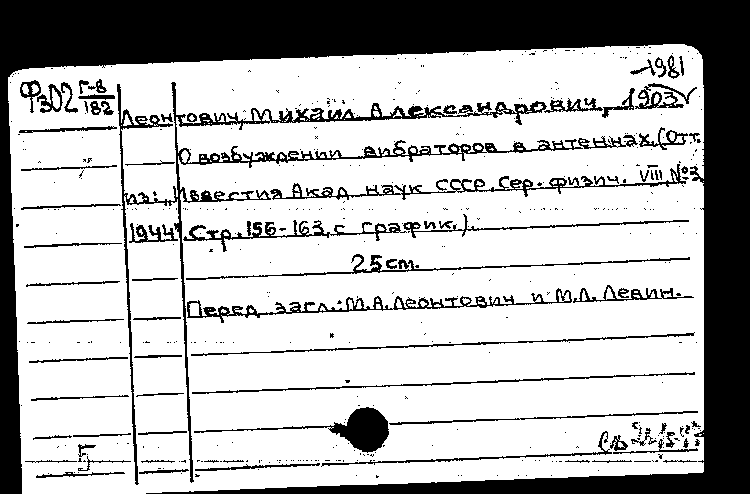 -1981
Ф302 Г-8/182
Леонтович, Михаил Александрович, 1903
О возбуждении вибраторов в антеннах. (Отт.
из: „Известия Акад наук СССР. Сер. физич. VIII, №3,
1944". Стр. 156-163, с график.).
25 cm.
Перед загл.: М.А. Леонтович и М.Л. Левин.
5